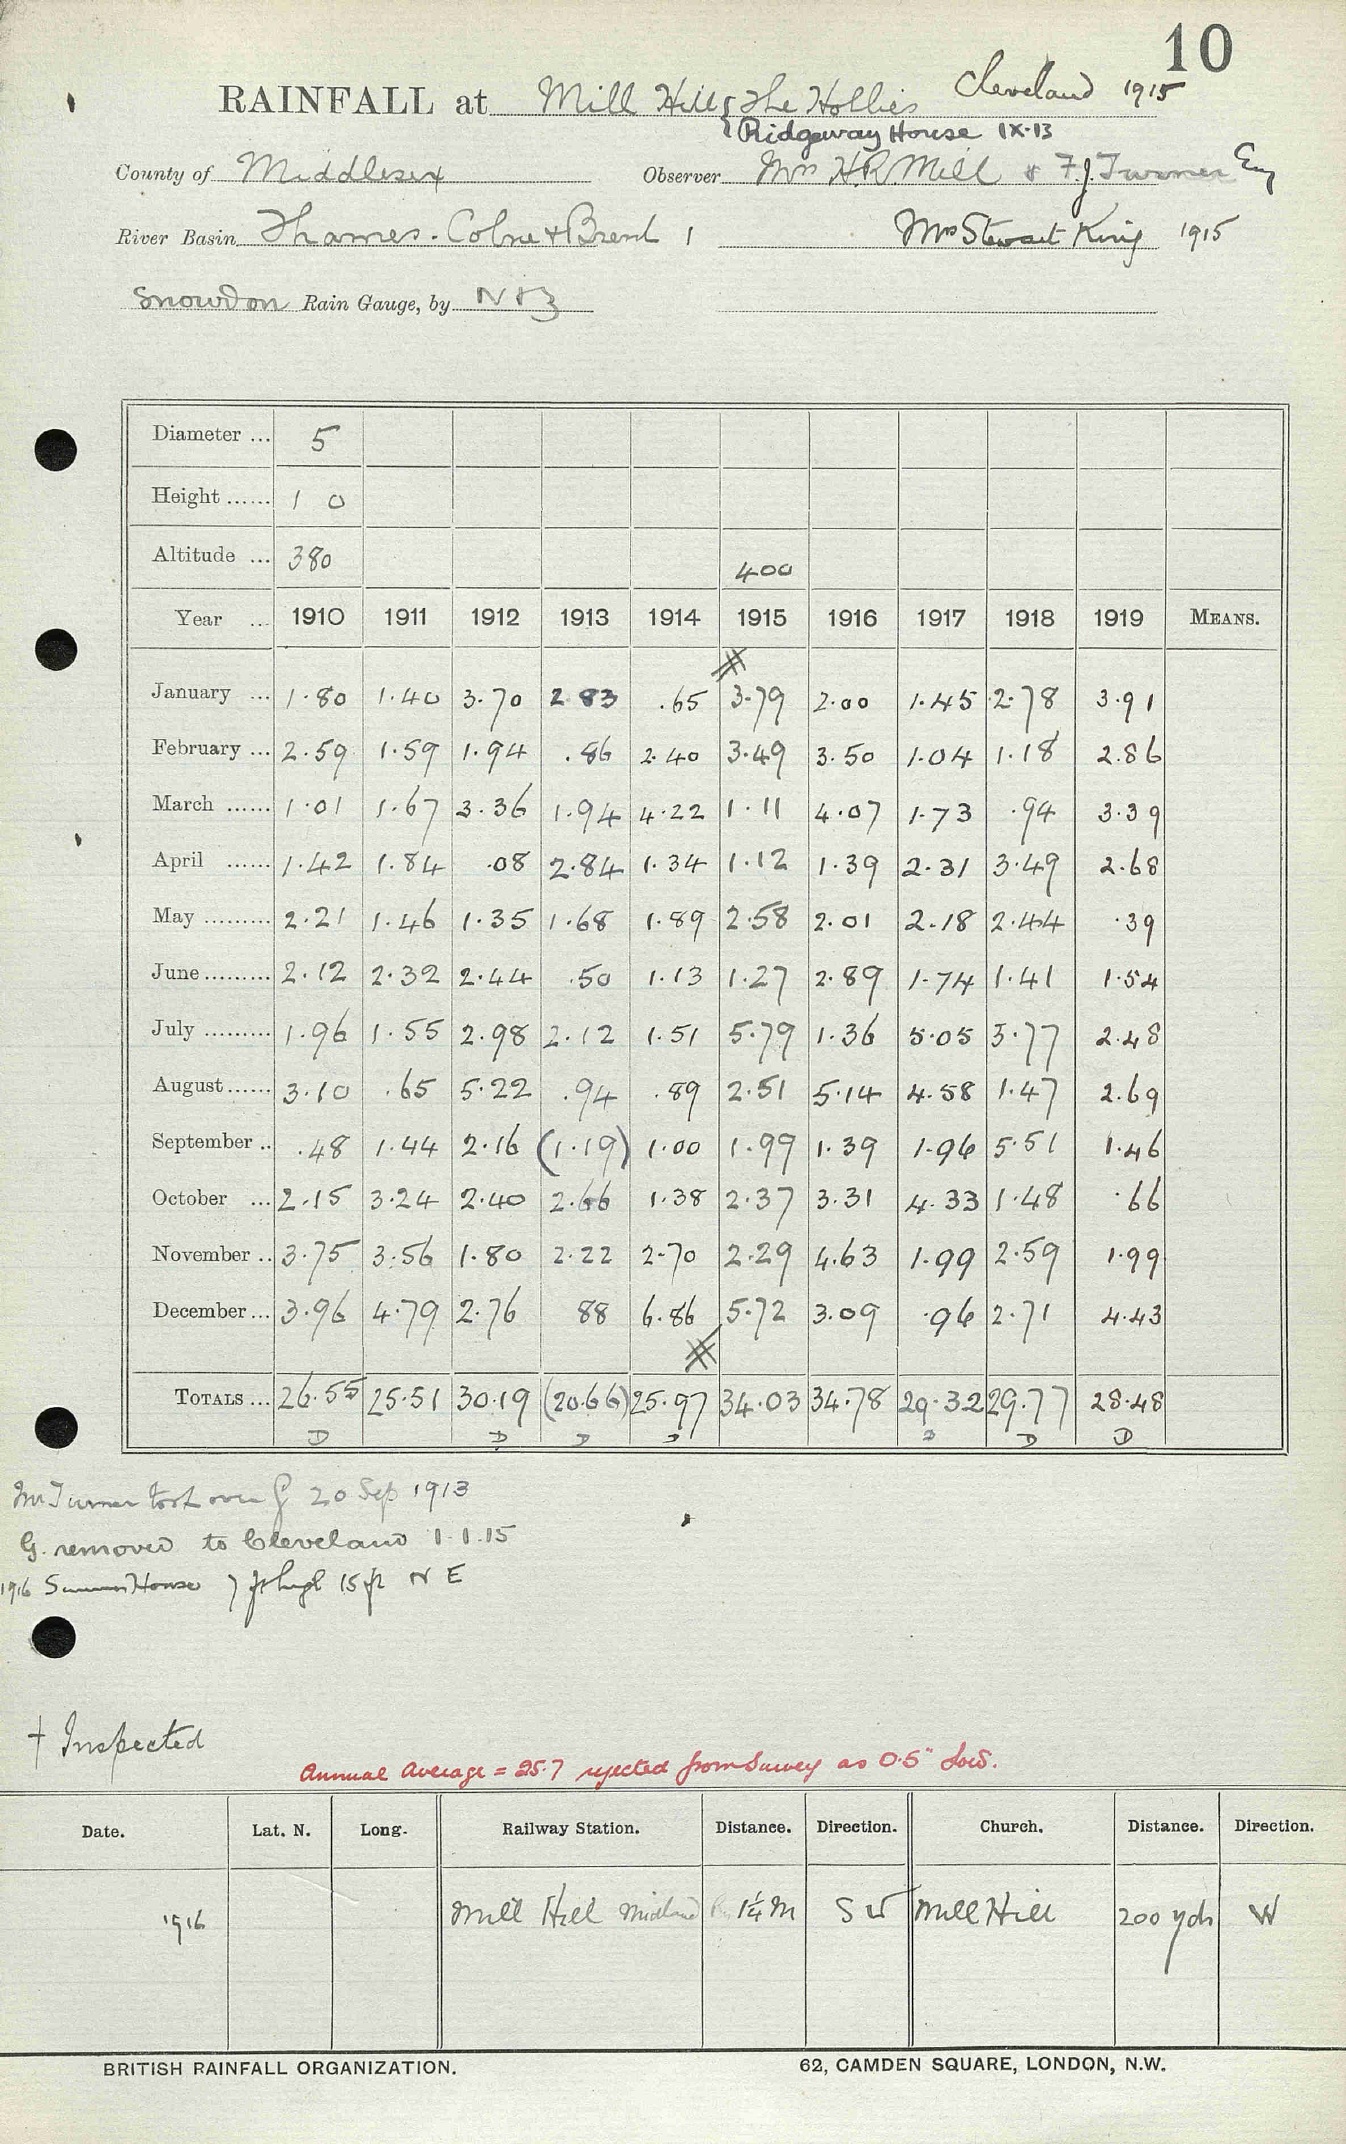 10
RAINFALL at Mill Hill { The Hollies Cleveland 1915
{ Ridgeway House IX.13
County of Middlesex Observer Mrs H.R. Mill & F.J. Turner Esq
River Basin Thames. Colne & Brent 1 Mrs Stewart King 1915
Snowdon Rain Gauge, by N & Z
Diameter ... 5
Height ...... 1 0
Altitude ... 380 400
Year ... 1910 1911 1912 1913 1914 1915 1916 1917 1918 1919 MEANS.
January ... 1.80 1.40 3.70 2.83 .65 3.79 2.00 1.45 2.78 3.91
February ... 2.59 1.59 1.94 .86 2.40 3.49 3.50 1.04 1.18 2.86
March ...... 1.01 1.67 3.36 1.94 4.22 1.11 4.07 1.73 .94 3.39
April ...... 1.42 1.84 .08 2.84 1.34 1.12 1.39 2.31 3.49 2.68
May ......... 2.21 1.46 1.35 1.68 1.89 2.58 2.01 2.18 2.44 .39
June ......... 2.12 2.32 2.44 .50 1.13 1.27 2.89 1.74 1.41 1.54
July ......... 1.96 1.55 2.98 2.12 1.51 5.79 1.36 5.05 3.77 2.48
August ...... 3.10 .65 5.22 .94 .89 2.51 5.14 4.58 1.47 2.69
September .. .48 1.44 2.16 (1.19) 1.00 1.99 1.39 1.96 5.51 1.46
October ... 2.15 3.24 2.40 2.66 1.38 2.37 3.31 4.33 1.48 .66
November .. 3.75 3.56 1.80 2.22 2.70 2.29 4.63 1.99 2.59 1.99
December ... 3.96 4.79 2.76 88 6.86 5.72 3.09 .96 2.71 4.43
TOTALS ... 26.55 25.51 30.19 (20.66) 25.97 34.03 34.78 29.32 29.77 28.48
D D D D D D D
Mr Turner took over G 20 Sep 1913
G. removed to Cleveland 1.1.15
1916 Summer House 7 ft high 15 ft N E
† Inspected
Annual Average = 25.7 rejected from Survey as 0.5" low.
Date. Lat. N. Long. Railway Station. Distance. Direction. Church. Distance. Direction.
1916 Mill Hill Midland 1¼ M SW Mill Hill 200 yds W
BRITISH RAINFALL ORGANIZATION. 62, CAMDEN SQUARE, LONDON, N.W.